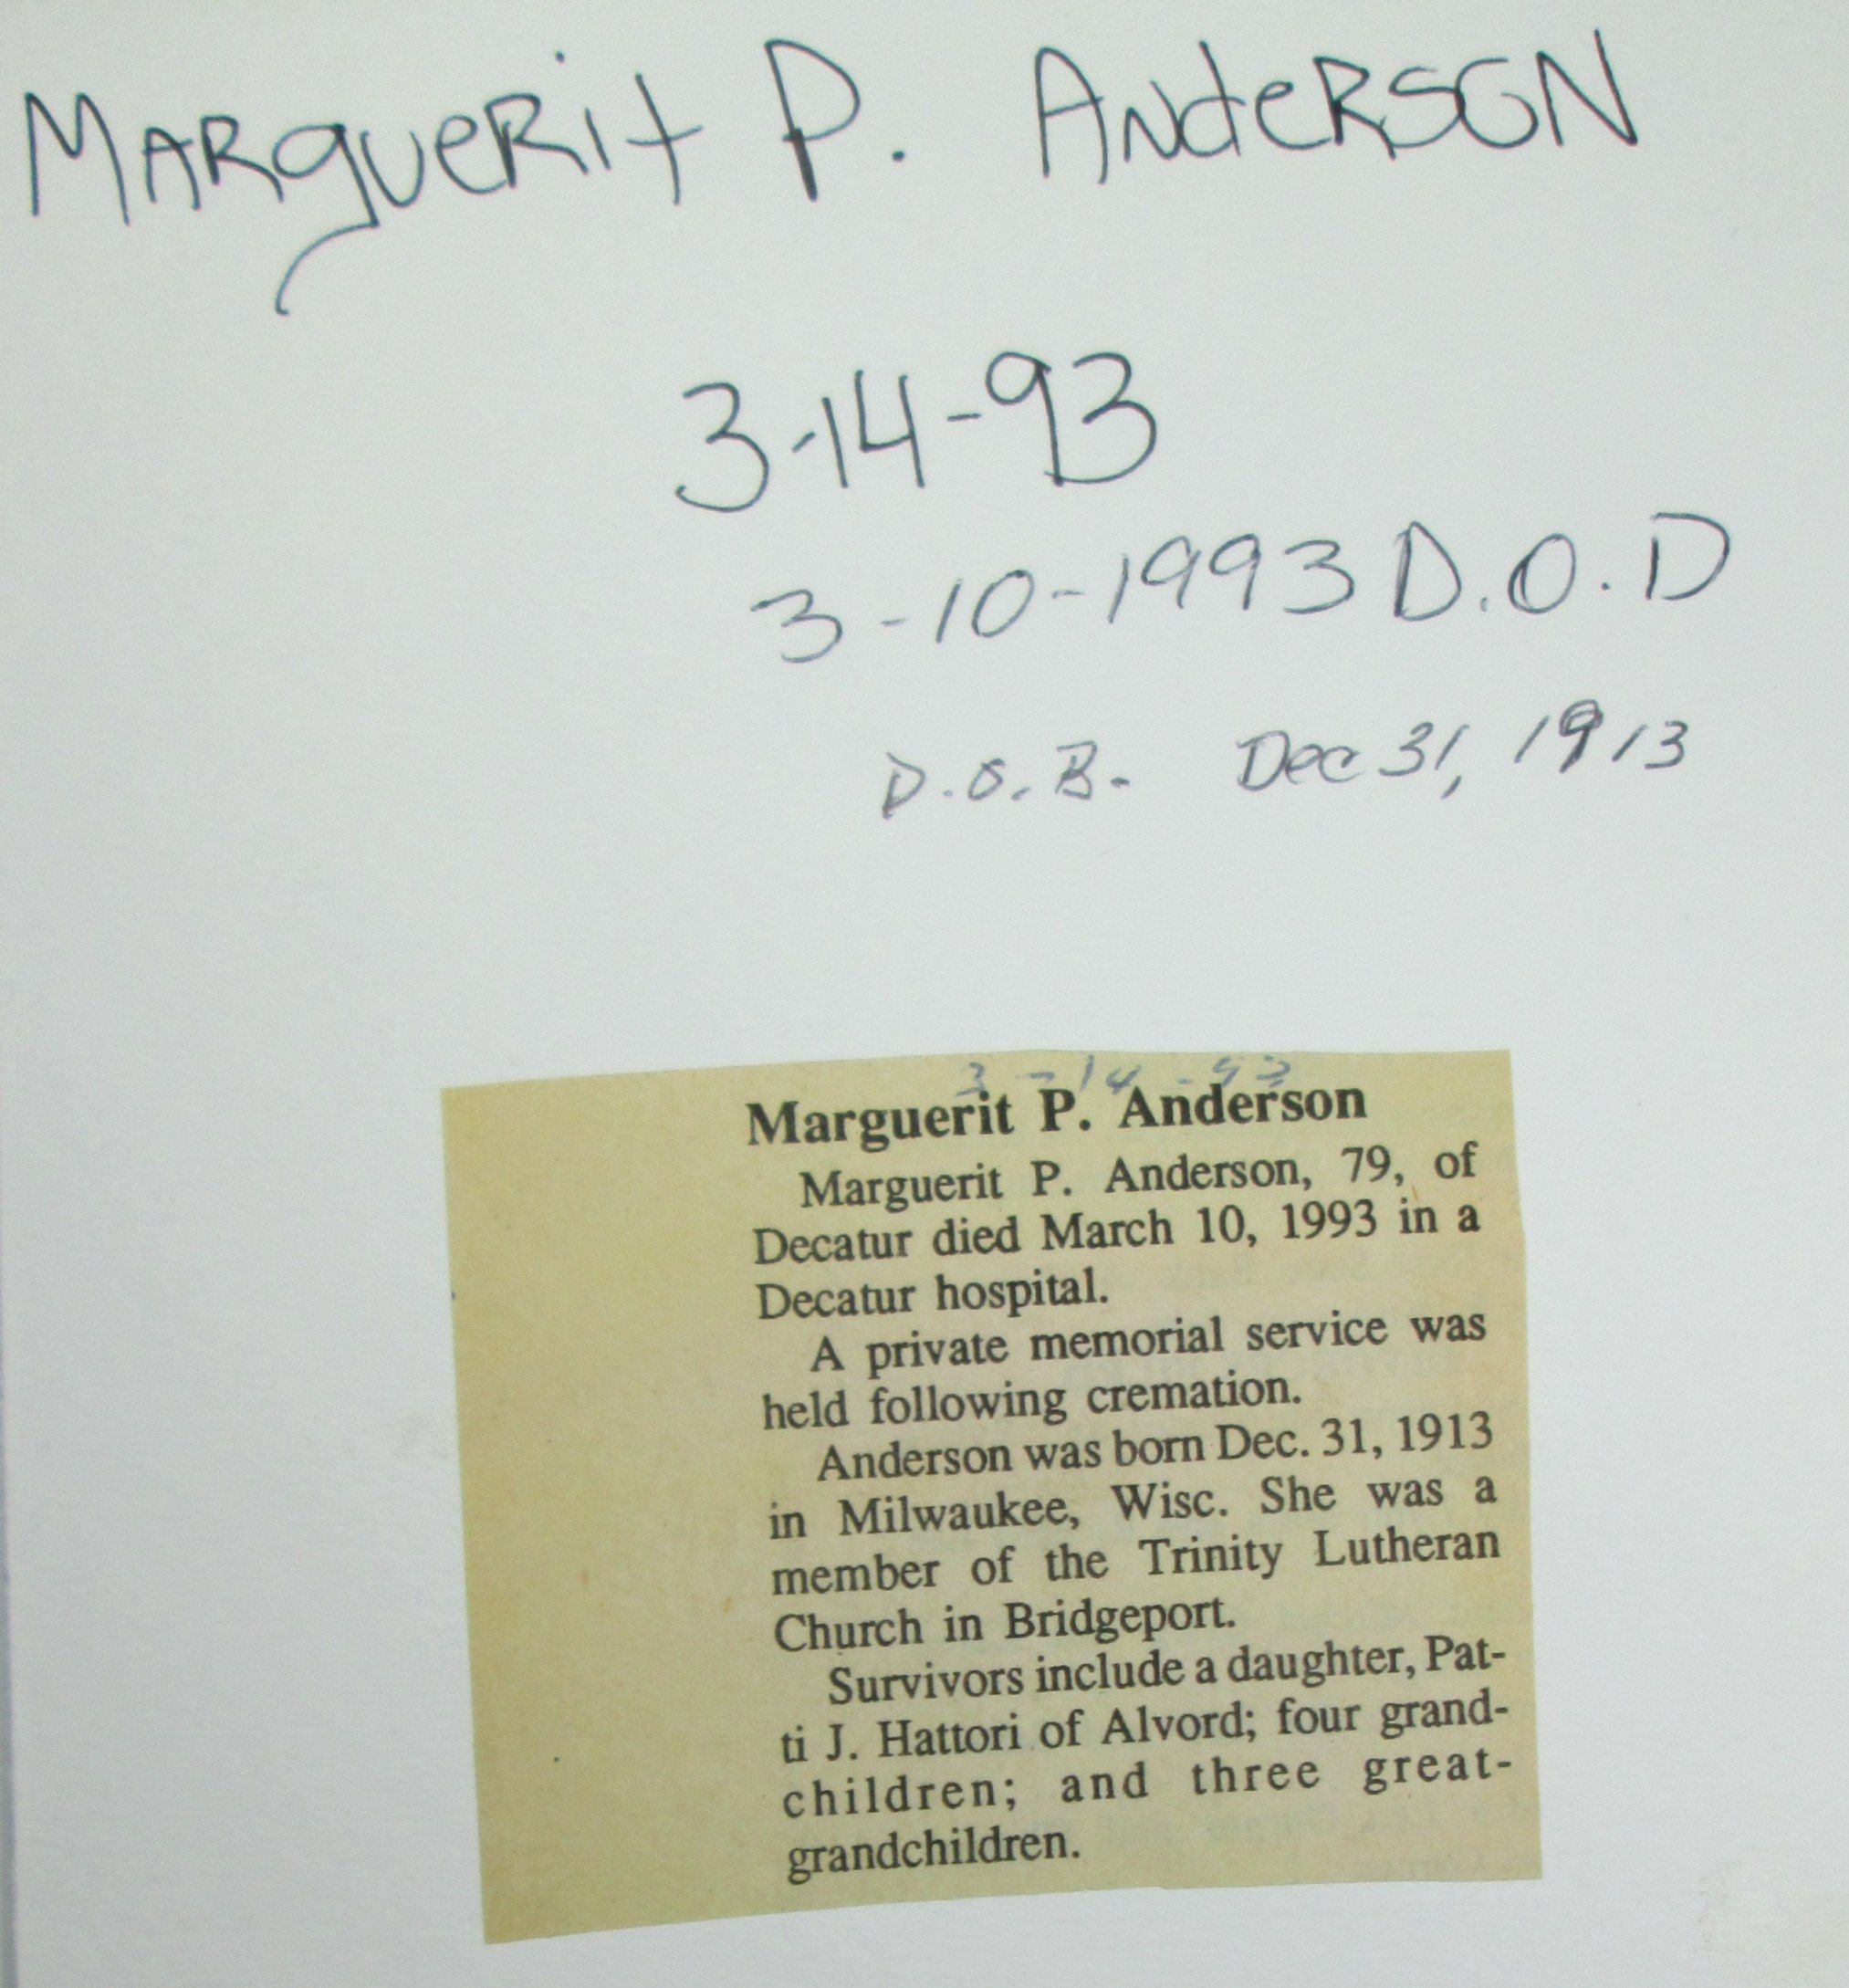 Marguerit P. Anderson
3-14-93
3-10-1993 D.O.D
D.O.B. Dec 31, 1913
3-14-93
Marguerit P. Anderson
Marguerit P. Anderson, 79, of
Decatur died March 10, 1993 in a
Decatur hospital.
A private memorial service was
held following cremation.
Anderson was born Dec. 31, 1913
in Milwaukee, Wisc. She was a
member of the Trinity Lutheran
Church in Bridgeport.
Survivors include a daughter, Pat-
ti J. Hattori of Alvord; four grand-
children; and three great-
grandchildren.